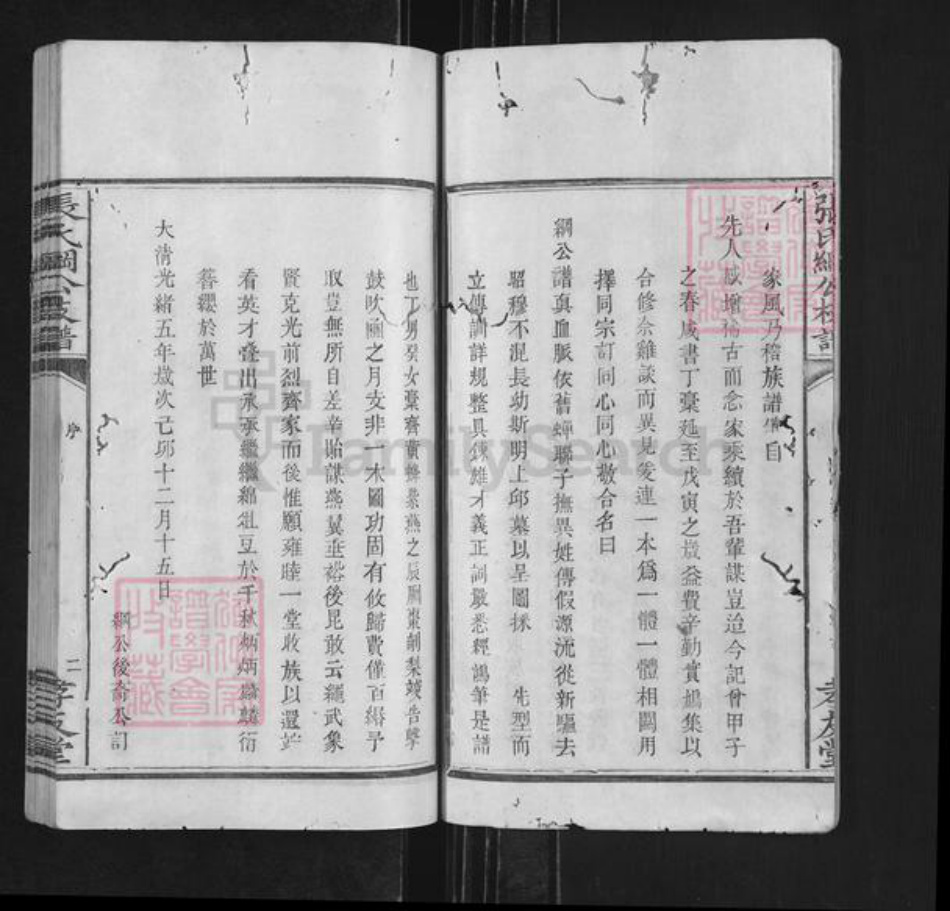 張氏綱公枝譜
孝友堂
家風乃稽族譜
自
先人感增神古而念家乘續於吾輩謀豈迨今記曾甲子
之春咸書丁稾延至戊寅之歲益費辛勤實鳩集以
合修余難談而異見爰連一本爲一體一體相關用
擇同宗訂同心同心敬合名曰
綱公譜真血脈依舊蟬聯子撫異姓傳假源流從新驅去
昭穆不混長幼斯明上邱墓以呈圖採 先型而
立傳訓詳規整具鍊雄才義正詞嚴悉經鴻筆是譜
也丁男癸女棗齊黃
燕之辰
棗剞梨竣告
鼓吹
之月支非一木圖功固有攸歸費僅百緡予
取豈無所自差幸貽謀燕翼垂裕後昆敢云繩武象
賢克光前烈齊家而後惟願雍睦一堂收族以還竝
看英才疊出承承繼繼綿俎豆於千秋炳炳麟麟衍
簪纓於萬世
大清光緒五年歲次己卯十二月十五日
綱公後裔公訂
張氏綱公支譜
序
二
孝友堂
FamilySearch